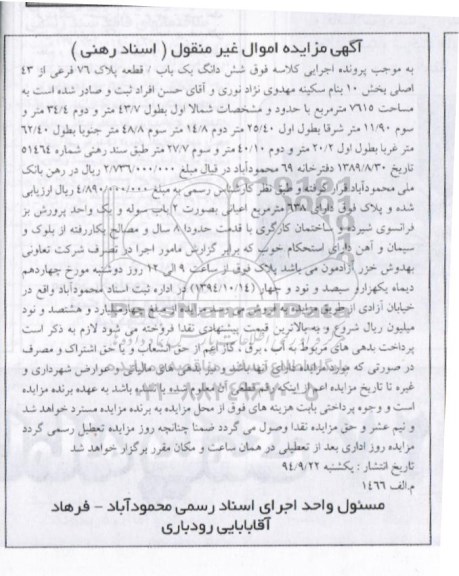 آگهی مزایده اموال غیر منقول ( اسناد رهنی )
به موجب پرونده اجرایی کلاسه فوق شش دانگ یک باب / قطعه پلاک ۷۶ فرعی از ۴۳
اصلی بخش ۱۰ بنام سکینه مهدوی نژاد نوری و آقای حسن افراد ثبت و صادر شده است به
مساحت ۷۶۱۵ مترمربع با حدود و مشخصات شمالا اول بطول ۴۳/۷ متر و دوم ۳۴/۴ متر و
سوم ۱۱/۹۰ متر شرقا بطول اول ۲۵/۴۰ متر دوم ۱۴/۸ متر سوم ۴۸/۸ متر جنوبا بطول ۶۲/۴۰
متر غربا بطول اول ۲۰/۲ متر و دوم ۴۰/۱۰ متر و سوم ۲۷/۷ متر طبق سند رهنی شماره ۵۱۴۶۴
تاریخ ۱۳۸۹/۸/۳۰ دفترخانه ۶۹ محمودآباد در قبال مبلغ ۲/۷۳۶/۰۰۰/۰۰۰ ریال در رهن بانک
ملی محمودآباد قرار گرفته و طبق نظر کارشناس رسمی به مبلغ ۴/۸۹۰/۰۰۰/۰۰۰ ریال ارزیابی
شده و پلاک فوق دارای ۶۳۸ مترمربع اعیانی بصورت ۲ باب سوله و یک واحد پرورش بز
فرانسوی شیرده و ساختمان کارگری با قدمت حدودا ۸ سال و مصالح بکاررفته از بلوک و
سیمان و آهن دارای استحکام خوب که برابر گزارش مامور اجرا در تصرف شرکت تعاونی
بهدوش خزر آزادمون می باشد پلاک فوق از ساعت ۹ الی ۱۲ روز دوشنبه مورخ چهاردهم
دیماه یکهزارو سیصد و نود و چهار (۱۳۹۴/۱۰/۱۴) در اداره ثبت اسناد محمودآباد واقع در
خیابان آزادی از طریق مزایده به فروش می رسد مزایده از مبلغ چهارمیلیارد و هشتصد و نود
میلیون ریال شروع و به بالاترین قیمت پیشنهادی نقدا فروخته می شود لازم به ذکر است
پرداخت بدهی های مربوط به آب ، برق ، گاز اعم از حق انشعاب و یا حق اشتراک و مصرف
در صورتی که مورد مزایده دارای آنها باشد و نیز بدهی های مالیاتی و عوارض شهرداری و
غیره تا تاریخ مزایده اعم از اینکه رقم قطعی آن معلوم شده یا نشده باشد به عهده برنده مزایده
است و وجوه پرداختی بابت هزینه های فوق از محل مزایده به برنده مزایده مسترد خواهد شد
و نیم عشر و حق مزایده نقدا وصول می گردد ضمنا چنانچه روز مزایده تعطیل رسمی گردد
مزایده روز اداری بعد از تعطیلی در همان ساعت و مکان مقرر برگزار خواهد شد
تاریخ انتشار : یکشنبه ۹۴/۹/۲۲
م.الف ۱۴۶۶
مسئول واحد اجرای اسناد رسمی محمودآباد - فرهاد
آقابابایی رودباری